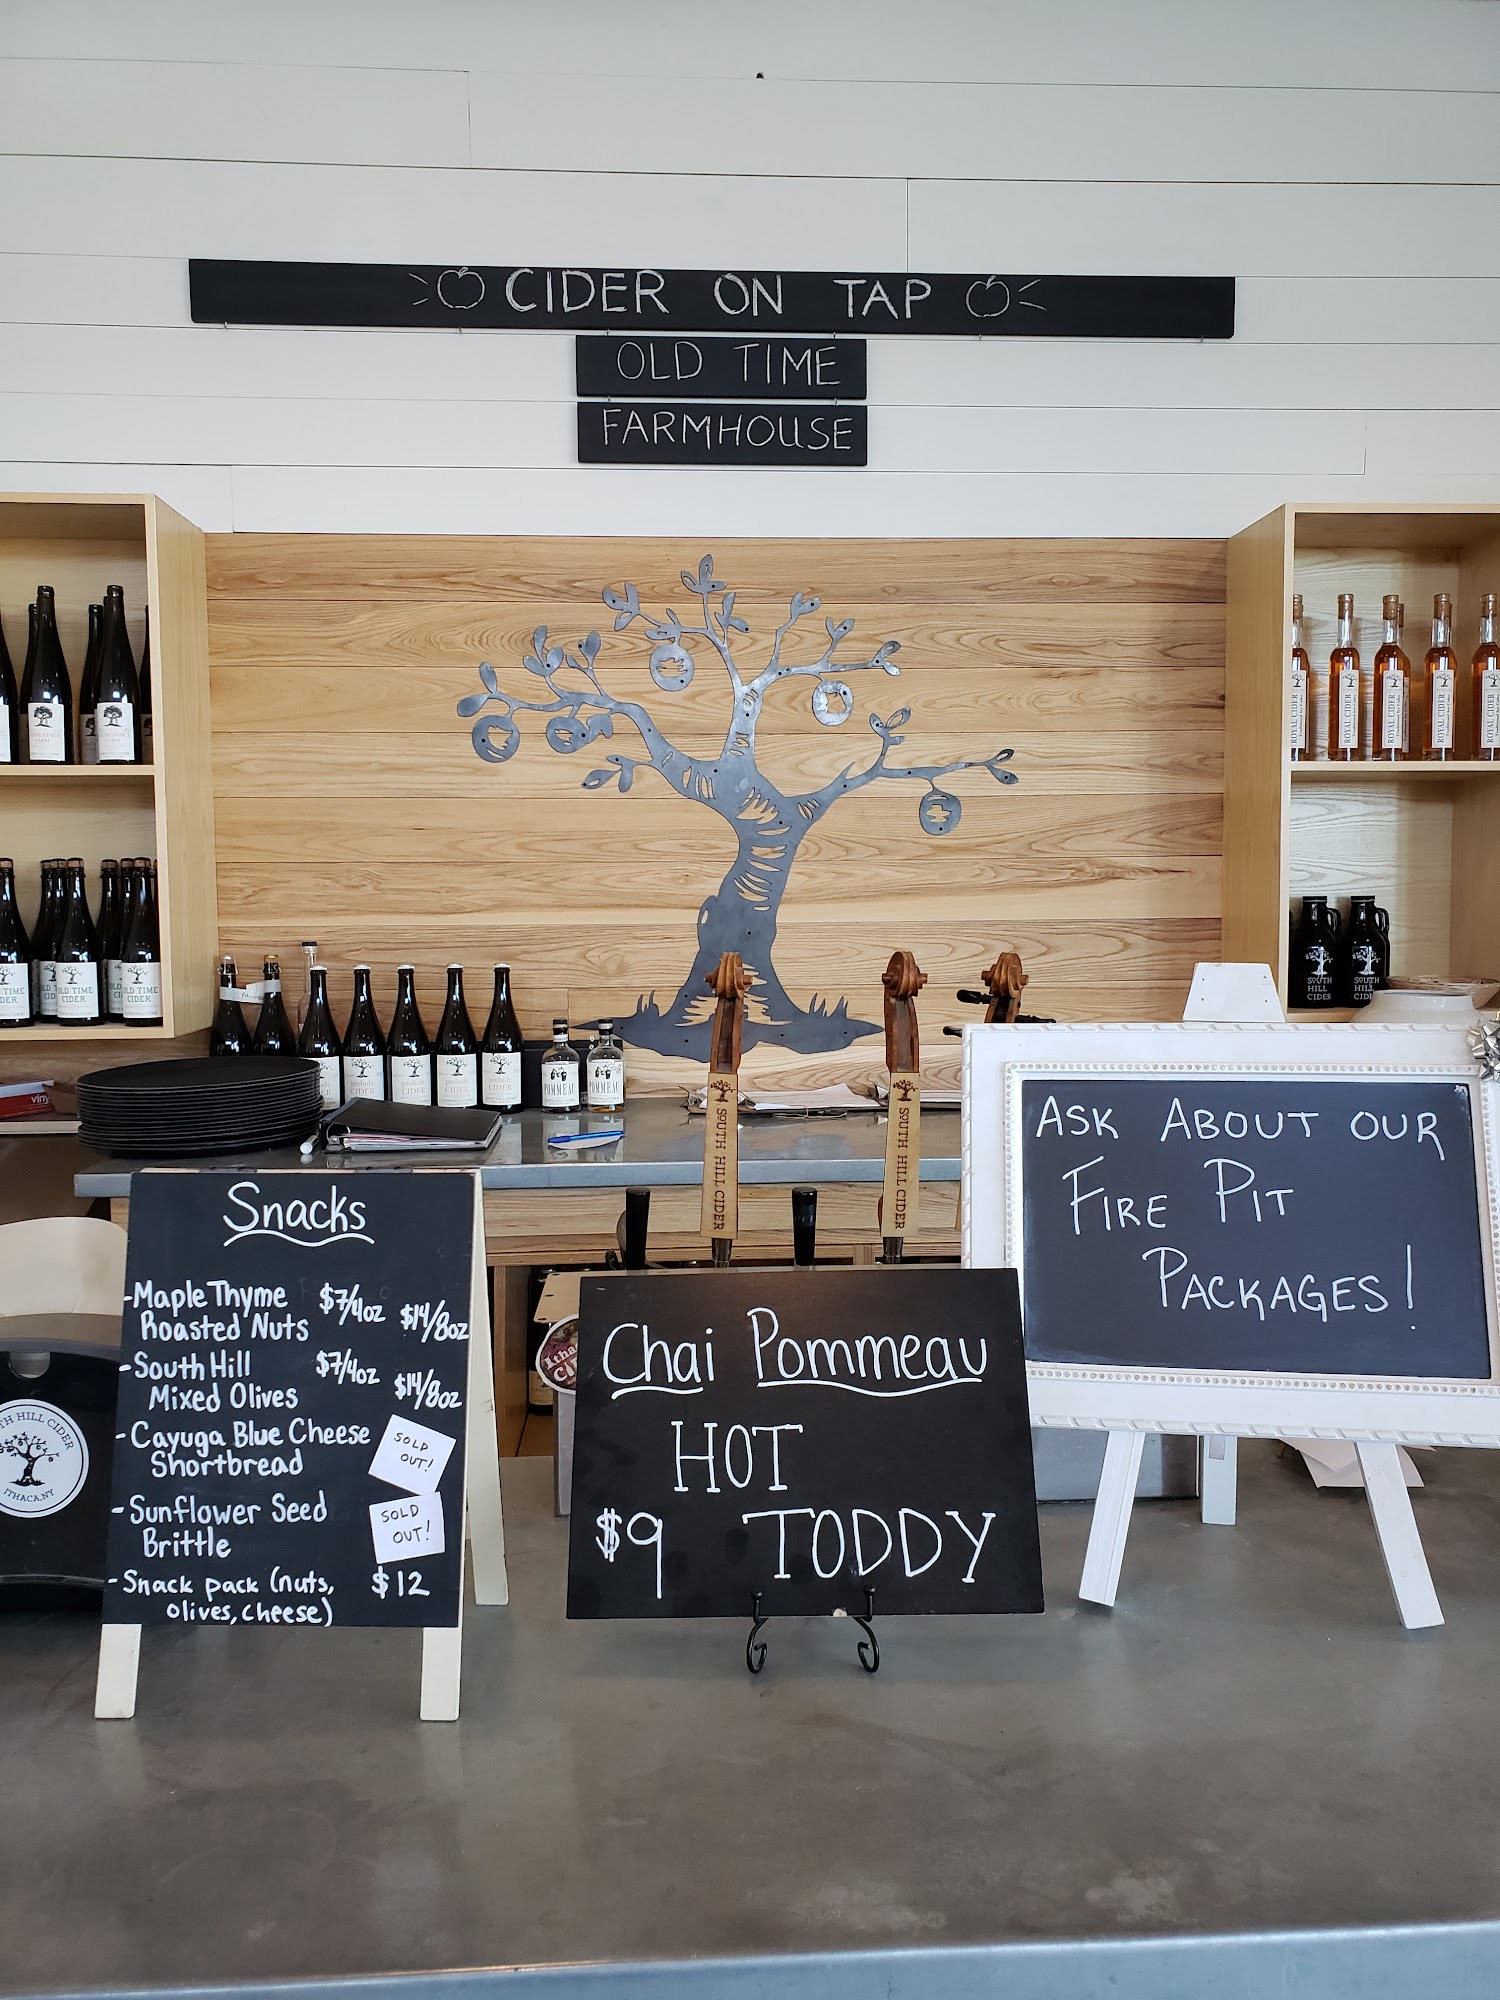 CIDER ON TAP
OLD TIME
FARMHOUSE
ROYAL CIDER
ROYAL CIDER
ROYAL CIDER
ROYAL CIDER
ROYAL CIDER
SOUTH
HILL
CIDER
SOUTH
HILL
OLD TIME
CIDER
OLD TIME
CIDER
prelude
CIDER
prelude
CIDER
prelude
CIDER
POMMEAU
POMMEAU
SOUTH HILL CIDER
SOUTH HILL CIDER
ASK ABOUT OUR
FIRE PIT
PACKAGES!
Snacks
-Maple Thyme $7/4oz $14/8oz
Roasted Nuts
-South Hill $7/4oz $14/8oz
Mixed Olives
-Cayuga Blue Cheese
Shortbread
SOLD
OUT!
-Sunflower Seed
Brittle
SOLD
OUT!
-Snack pack (nuts, $12
olives, cheese)
Chai Pommeau
HOT
$9 TODDY
TH HILL CIDER
ITHACA.NY